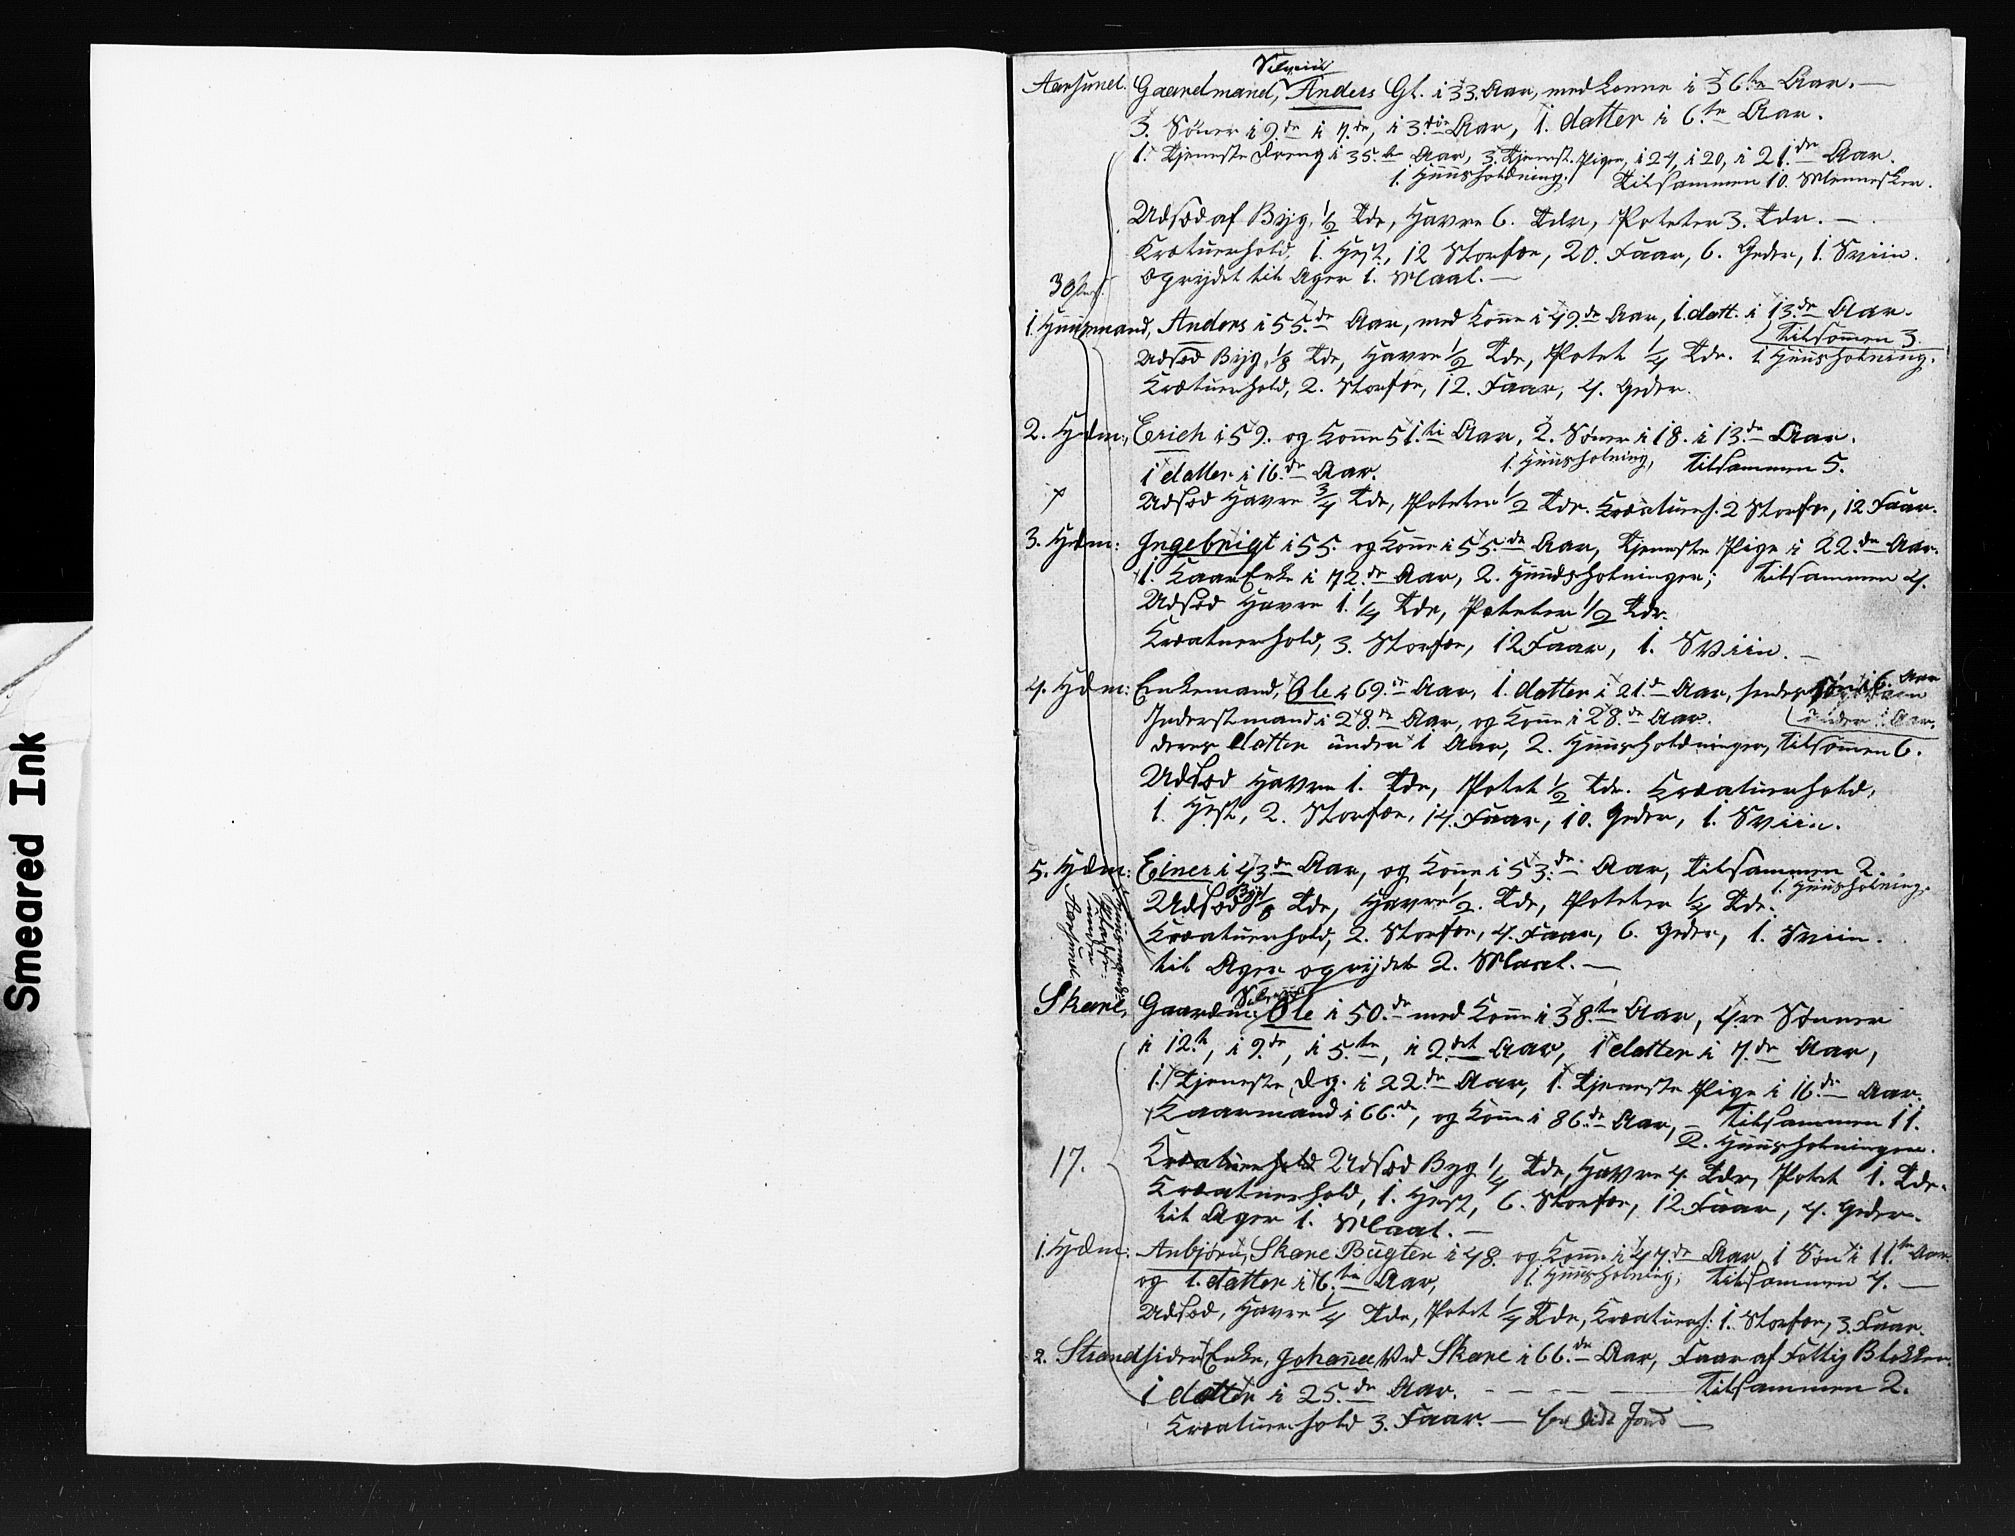 Smeared Ink
Aarsund. Gaardmand, Anders Gl. i 33. Aar, med Konne i 36te Aar. —
3. Sönner i 9.de i 7.de, i 3.die Aar, 1. datter i 6.te Aar.
1. Tjeneste Dreng i 35.te Aar, 3. Tjenest. Piger, i 24, i 20, i 21.de Aar.
1. Huusholdning. Tilsammen 10. Mennesker.
Udsæd af Byg, 1/2 Tde, Havre 6. Tdr, Poteter 3. Tdr. —
Kræturhold, 1. Hest, 12 Storfæ, 20. Faar, 6. Geder, 1. Sviin.
Oprydet til Ager 1. Maal. —
30
1. Huusmand, Anders i 55.de Aar, med Konne i 49.de Aar, 1. datt. i 13.de Aar.
Tilsammen 3.
Udsæd Byg, 1/8 Tde, Havre 1/2 Tde, Potet 1/4 Tde. 1 Huusholning.
Kræturhold, 2. Storfæ, 12. Faar, 4. Geder.
2. Hdm:, Erich i 59. og Konne 51.ti Aar, 2. Sönner i 18. i 13.de Aar.
1 datter i 16.de Aar. 1. Huusholning, Tilsammen 5.
Udsæd Havre 3/4 Tde, Poteter 1/2 Tde. Kræaturh. 2 Storfæ, 12 Faar.
3. Hdm: Ingebrigt i 55. og Konne i 55.de Aar, Tjeneste Pige i 22.de Aar.
1. Kaar Enke i 72.de Aar, 2. Huusholninger; Tilsammen 4.
Udsæd Havre 1. 1/4 Tde, Poteter 1/2 Tde.
Kræaturhold, 3. Storfæ, 12 Faar, 1. Sviin. —
4. Hdm: Enkemand, Ole i 69.de Aar, 1. datter i 21.de Aar, hendes 6 Aar
under 1 Aar.
Inderstmand i 28.de Aar, og Konne i 28.de Aar.
deres datter under 1 Aar, 2. Huusholdninger, Tilsammen 6.
Udsæd Havre 1. Tde, Potet 1/2 Tde. Kræaturhold,
1. Hest, 2. Storfæ, 14. Faar, 10. Geder, 1. Sviin.
5. Hdm: Einer i 43de Aar, og Konne i 53.de Aar, Tilsammen 2.
1. Huusholning.
Udsæd Byg 1/8 Tde, Havre 1/2. Tde, Poteter 1/4 Tde.
Kræaturhold, 2. Storfæ, 4. Faar, 6. Geder, 1. Sviin.
til Ager oprydet 2. Maal. —
Skare, Gaardm: Ole i 50.de med Konne i 38.te Aar, 4re Sönner
i 12.te, i 9.de, i 5.te, i 2.det Aar, 1 datter i 7.de Aar,
1. Tjeneste Dg. i 22.de Aar, 1. Tjeneste Pige i 16.de Aar.
Kaarmand i 66.de, og Konne i 86.de Aar, — Tilsammen 11.
2. Huusholninger.
17. Kræaturhold Udsæd Byg 1/4 Tde, Havre 4. Tdr, Potet 1. Tde.
Kræaturhold, 1. Hest, 6. Storfæ, 12 Faar, 4. Geder.
til Ager 1. Maal. —
1. Hdm: Anbjörn, Skare Bugten i 48. og Konne i 47.de Aar, 1 Sön i 11.te Aar
og 1. datter i 6.te Aar, 1 Huusholning; Tilsammen 4. —
Udsæd, Havre 1/4 Tde, Potet 1/4 Tde, Kræaturh: 1. Storfæ, 3. Faar.
2. Strandsider Enke, Johanna Ved Skare i 66.de Aar, Faar af Fattig Blokken.
1 datter i 25.de Aar. — — — — Tilsammen 2.
Kræaturhold 3. Faar. — Jord —